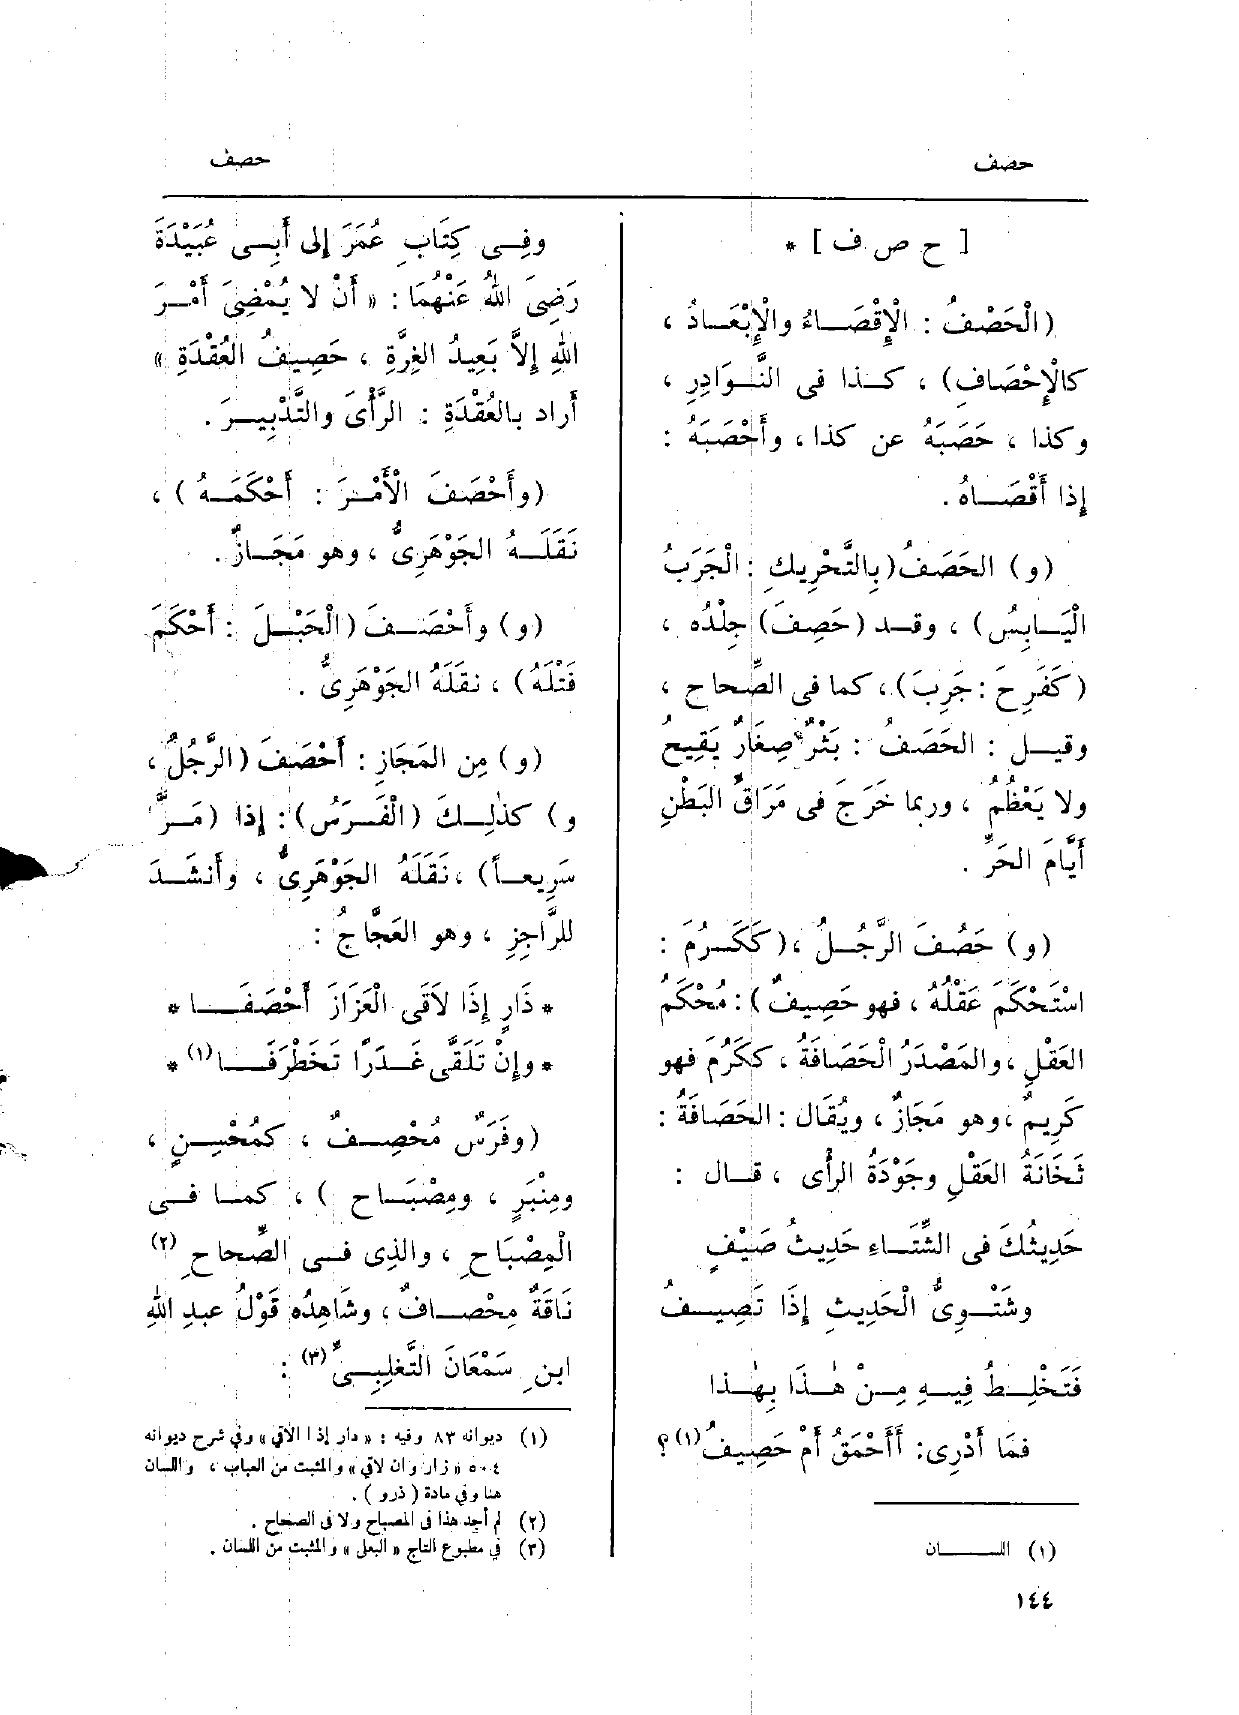 حصف
حصف
[ ح ص ف ] *
(الْحَصْفُ : الْإِقْصَاءُ والْإِبْعَادُ ،
كالْإِحْصَافِ) ، كذا فى النَّوَادِرِ ،
وكذا ، حَصَبَهُ عن كذا ، وأَحْصَبَهُ :
إذا أَقْصَاهُ .
(و) الحَصَفُ (بِالتَّحْرِيكِ : الْجَرَبُ
الْيَابِسُ) ، وقد (حَصِفَ) جِلْدُه ،
(كَفَرِحَ : جَرِبَ) ، كما فى الصِّحاحِ ،
وقيل : الحَصَفُ : بَثْرٌ صِغَارٌ يَقِيحُ
ولا يَعْظُمُ ، وربما خَرَجَ فى مَرَاقِّ البَطْنِ
أَيَّامَ الحَرِّ .
(و) حَصُفَ الرَّجُلُ ، (كَكَرُمَ :
اسْتَحْكَمَ عَقْلُهُ ، فهو حَصِيفٌ) : مُحْكَمُ
العَقْلِ ، والمَصْدَرُ الْحَصَافَةُ ، ككَرُمَ فهو
كَرِيمٌ ، وهو مَجَازٌ ، ويُقَال : الحَصَافَةُ :
ثَخَانَةُ العَقْلِ وجَوْدَةُ الرأْى ، قال :
حَدِيثُكَ فى الشِّتَاءِ حَدِيثُ صَيْفٍ
وشَتْوِىُّ الْحَدِيثِ إِذَا تَصِيفُ
فَتَخْلِطُ فِيهِ مِنْ هٰذَا بِهٰذا
فمَا أَدْرِى : أَأَحْمَقُ أَمْ حَصِيفُ (١) ؟
(١) اللسان
وفِى كِتَابِ عُمَرَ إلى أَبِى عُبَيْدَةَ
رَضِىَ اللهُ عَنْهُمَا : « أَنْ لا يُمْضِىَ أَمْرَ
اللهِ إِلاَّ بَعِيدُ الغِرَّةِ ، حَصِيفُ العُقْدَةِ »
أراد بالعُقْدَةِ : الرَّأْىَ والتَّدْبِيرَ .
(وأَحْصَفَ الأَمْرَ : أَحْكَمَهُ) ،
نَقَلَهُ الجَوْهَرِىُّ ، وهو مَجَازٌ .
(و) وأَحْصَفَ (الْحَبْلَ : أَحْكَمَ
فَتْلَهُ) ، نقَلَهُ الجَوْهَرِىُّ .
(و) مِن المَجَازِ : أَحْصَفَ (الرَّجُلُ ،
و) كذٰلِكَ (الْفَرَسُ) : إذا (مَرَّ
سَرِيعاً) ، نَقَلَهُ الجَوْهَرِىُّ ، وأَنشَدَ
للرَّاجِزِ ، وهو العَجَّاجُ :
* ذَارٍ إِذَا لاَقَى الْعَزَازَ أَحْصَفَا *
* وإِنْ تَلَقَّى غَدَرًا تَخَطْرَفَا (١) *
(وفَرَسٌ مُحْصِفٌ ، كمُحْسِنٍ ،
ومِنْبَرٍ ، ومِصْبَاحٍ ) ، كما فى
الْمِصْبَاحِ ، والذى فى الصِّحاحِ (٢)
نَاقَةٌ مِحْصافٌ ، وشَاهِدُه قَوْلُ عبدِ اللهِ
ابنِ سَمْعَانَ التَّغْلِبِىِّ (٣) :
(١) ديوانه ٨٣ وفيه : « دار إذا الأقي » وفي شرح ديوانه
٥٠٤ « زار وان لاقي » والمثبت من العباب ، واللسان
هنا وفي مادة ( ذرو ) .
(٢) لم أجد هذا فى المصباح ولا فى الصحاح .
(٣) في مطبوع التاج « البعلى » والمثبت من اللسان .
١٤٤